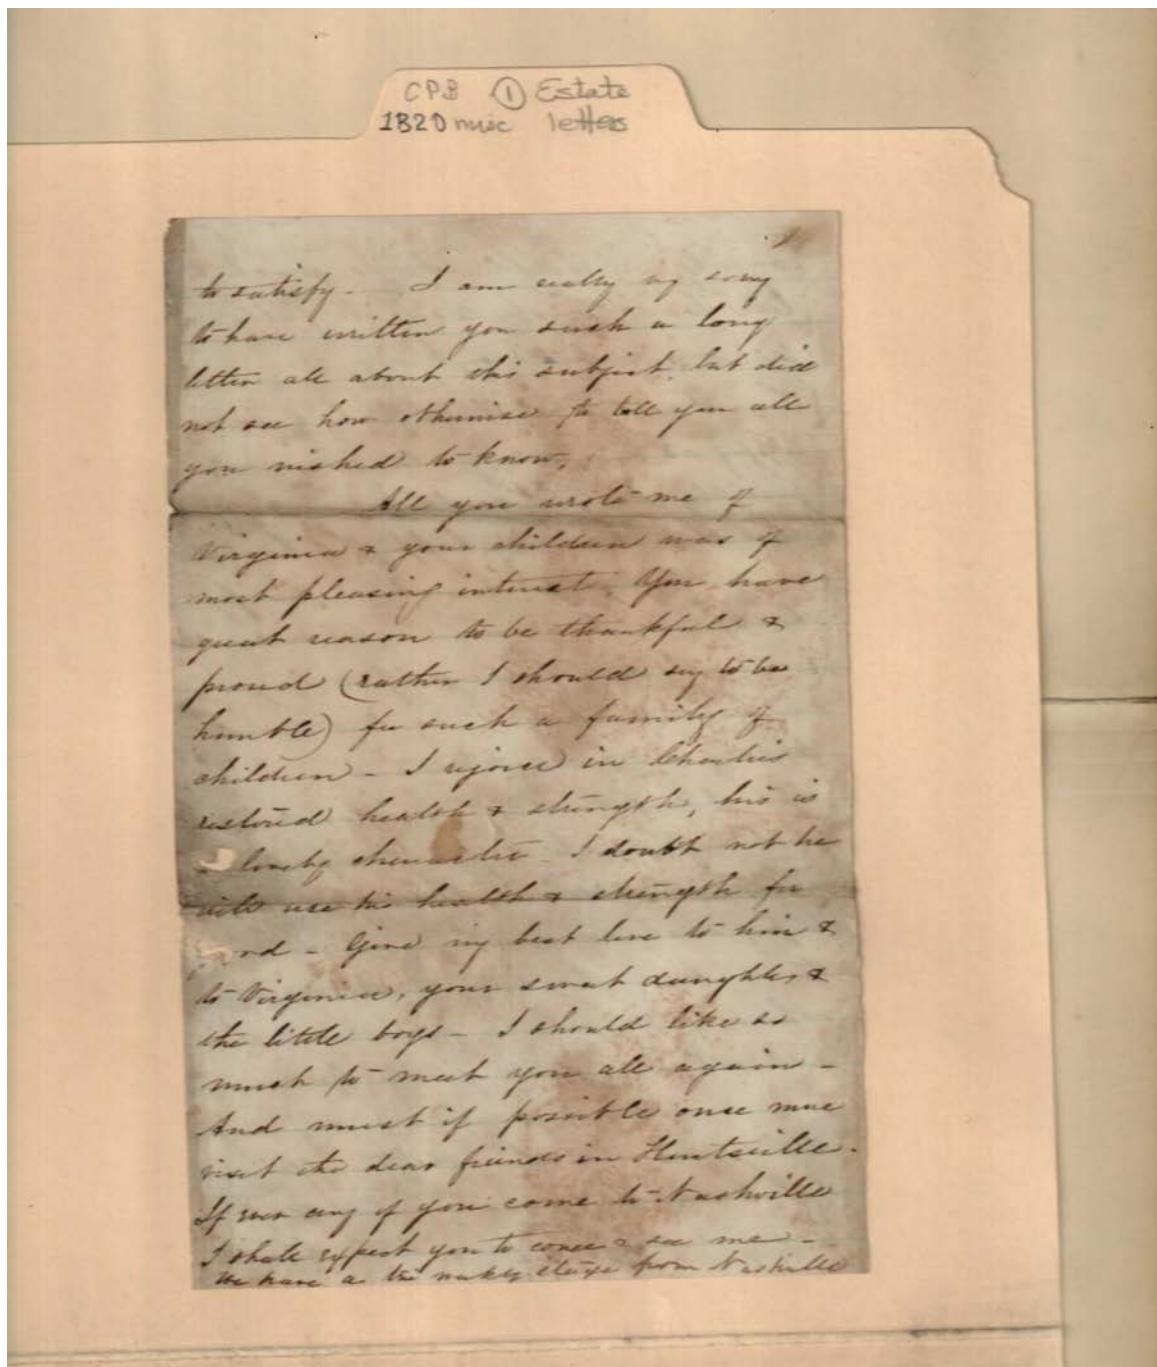 CPB ① Estate
1820 misc letters
to satisfy - I am really sorry
to have written you such a long
letter all about this subject, but did
not see how otherwise to tell you all
you wished to know,
All you wrote me of
Virginia & your children was of
most pleasing interest. You have
great reason to be thankful &
proud (rather I should say to be
humble) for such a family of
children - I rejoice in Charlies
restored health & strength, his is
a lovely character - I doubt not he
will use his health & strength for
good - Give my best love to him &
to Virginia, your sweet daughter, &
the little boys - I should like so
much to meet you all again -
And must if possible once more
visit the dear friends in Huntsville.
If ever any of you come to Nashville
I shall expect you to come & see me -
We have a tri weekly stage from Nashville